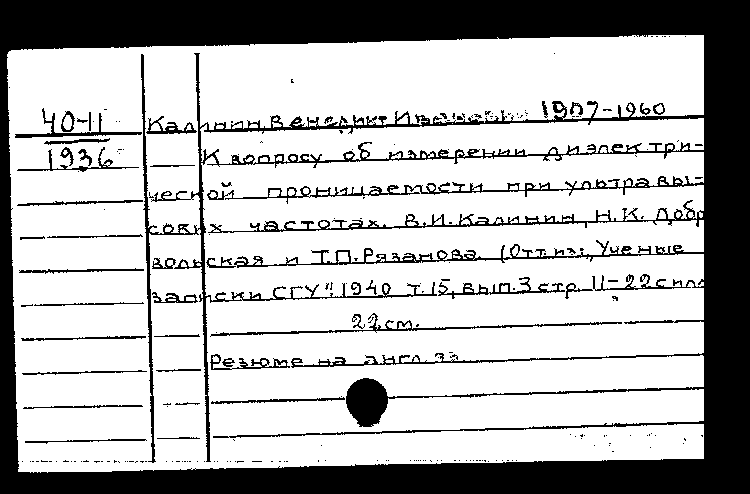 40-11
1936
Калинин, Венедикт Иванович 1907-1960
К вопросу об измерении диэлектри-
ческой проницаемости при ультравы-
соких частотах. В.И. Калинин, Н.К. Добр
вольская и Т.П. Рязанова. (Отт. из: „Ученые
записки СГУ". 1940 т. 15, вып. 3 стр. 11-22 с илл
22 см.
Резюме на англ. яз.